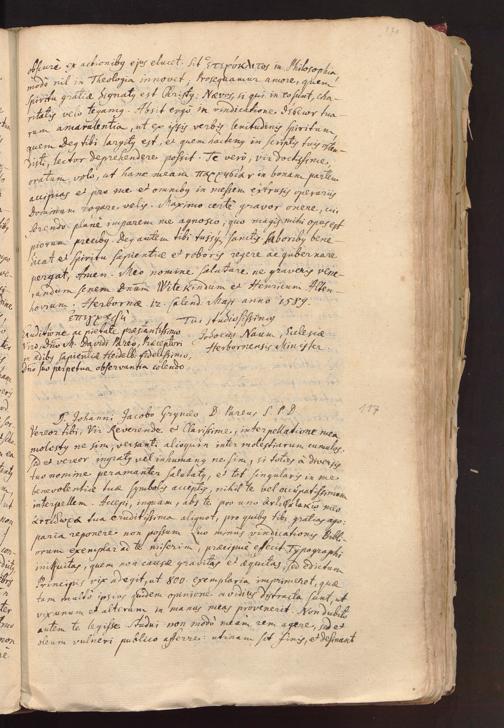 obscurè ex actionibꝰ ejus elucet: Sit ἑτερόκλιτος in Philosophia
modò nil in Theologia innovet; Prosequamur amore, quem
Spiritu gratiæ signatꝰ est Christꝰ: Nævos, si qui in eo sunt, cha-
ritatis velo tegamꝰ. Absit ergò in vindicatione
amarulentia, ut ex ipsis verbis lenitudinis spiritum,
quem Deꝰ tibi largitꝰ est, et quem hactenꝰ in scriptis tuis
disti, lector deprehendere possit. Te verò, vir doctissime,
oratum volo, ut hanc meam παρρησίαν in bonam partem
accipias et pro me et omnibꝰ in messem extrusis operariis
Dominum rogare velis. Maximo certè gravor onere, cui
ferendo planè imparem me agnosco, quo magis mihi opꝰ est
piorum precibꝰ. Deꝰ autem tibi tuisqꝫ, sanctis laboribꝰ bene-
dicat et Spiritu sapientiæ et roboris regere ac gubernare
pergat, Amen. Meo nomine salutare ne graveris vene-
randum senem Dnūm Witekindum et Henricum Alten-
hovium. Herbornæ 12. Calend. Maji anno 1589.
ἐπιγραφὴ
Tuꝰ studiosissimꝰ
Eruditione ac pietate præstantissimo
Jodocus Naum, Ecclesiæ
Viro, Dno M. Davidi Pareo, Præceptori
Herbornensis Minister.
in ædibꝰ sapientiæ Heidelb. fidelissimo,
Dno suo perpetua observantia colendo.
157
Johanni Jacobo Grynæo D. Pareus S. P. D.
Vereor tibi, Vir Reverende et Clarissime, interpellatione mea
molestꝰ ne sim, versanti alioquin inter molestiarum cumulos.
Sed et vereor ingratꝰ vel inhumanꝰ ne sim, si toties à diversis
tuo nomine peramanter salutatꝰ, et tot singularis in me
benevolentiæ tuæ symbolis acceptis, nihil te vel occupatissimum
interpellem. Accepi, inquam, abs te pro uno meo
ἀντίδωρα tua eruditissima aliquot, pro quibꝰ tibi gratias apo-
paria reponere non possum. Quo minus vindicationis Bibli-
orum exemplar ad te miserim, præcipuè effecit Typographi
iniquitas, quem non causæ gravitas et æquitas, sed dictum
Principis vix adegit, ut 800 exemplaria imprimeret, quæ
tam multò ipsius quidem opinione avidius distracta sunt, ut
vix unum et alterum in manus meas provenerit. Non dubito
autem te legisse. Studui non modò meam rem agere, sed et
oleum vulneri publico afferre: utinam sit finis, et desinant